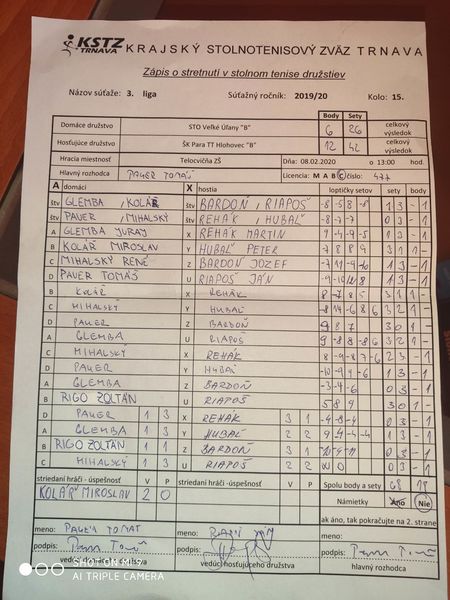 KSTZ TRNAVA KRAJSKÝ STOLNOTENISOVÝ ZVÄZ TRNAVA
Zápis o stretnutí v stolnom tenise družstiev
Názov súťaže: 3. liga Súťažný ročník: 2019/20 Kolo: 15.
Body Sety
Domáce družstvo STO Veľké Úľany "B" 6 26 celkový výsledok
Hosťujúce družstvo ŠK Para TT Hlohovec "B" 12 42 celkový výsledok
Hracia miestnosť Telocvičňa ZŠ Dňa: 08.02.2020 o 13:00 hod.
Hlavný rozhodca PAVER TOMÁŠ Licencia: M A B C číslo: 477
A domáci X hostia loptičky setov sety body
štv GLEMBA, KOLÁŘ štv BARDOŇ, RIAPOŠ 1 3 - 1
štv PAVER, MIHALSKÝ štv REHÁK, HUBAĽ -8 -7 -7 0 3 - 1
A GLEMBA JURAJ X REHÁK MARTIN 9 -4 -9 -5 1 3 - 1
B KOLÁŘ MIROSLAV Y HUBAĽ PETER 3 1 1 -
C MIHALSKÝ RENÉ Z BARDOŇ JOZEF 1 3 - 1
D PAVER TOMÁŠ U RIAPOŠ JÁN 1 3 - 1
B KOLÁŘ X REHÁK 8 -7 8 5 3 1 1 -
C MIHALSKÝ Y HUBAĽ -8 14 -6 8 6 3 2 1 -
D PAVER Z BARDOŇ 9 8 7 3 0 1 -
A GLEMBA U RIAPOŠ 9 -8 8 -8 6 3 2 1 -
C MIHALSKÝ X REHÁK 8 -9 -8 7 -6 2 3 - 1
D PAVER Y HUBAĽ 1 3 - 1
A GLEMBA Z BARDOŇ -3 -4 -6 0 3 - 1
B RIGO ZOLTÁN U RIAPOŠ 5 8 9 3 0 1 -
D PAVER 1 3 X REHÁK 3 1 -4 -8 -4 0 3 - 1
A GLEMBA 1 3 Y HUBAĽ 2 2 9 -4 -4 -4 1 3 - 1
B RIGO ZOLTÁN 1 1 Z BARDOŇ 3 1 0 3 - 1
C MIHALSKÝ 1 3 U RIAPOŠ 2 2 WO 0 3 - 1
striedaní hráči -úspešnosť V P striedaní hráči -úspešnosť V P Spolu body a sety 68 18
KOLÁŘ MIROSLAV 2 0 Námietky Áno Nie
ak áno, tak pokračujte na 2. strane
meno: PAVER TOMÁŠ meno: meno:
podpis: podpis: podpis:
vedúci hosťujúceho družstva hlavný rozhodca
SHOT ON MI 9
AI TRIPLE CAMERA